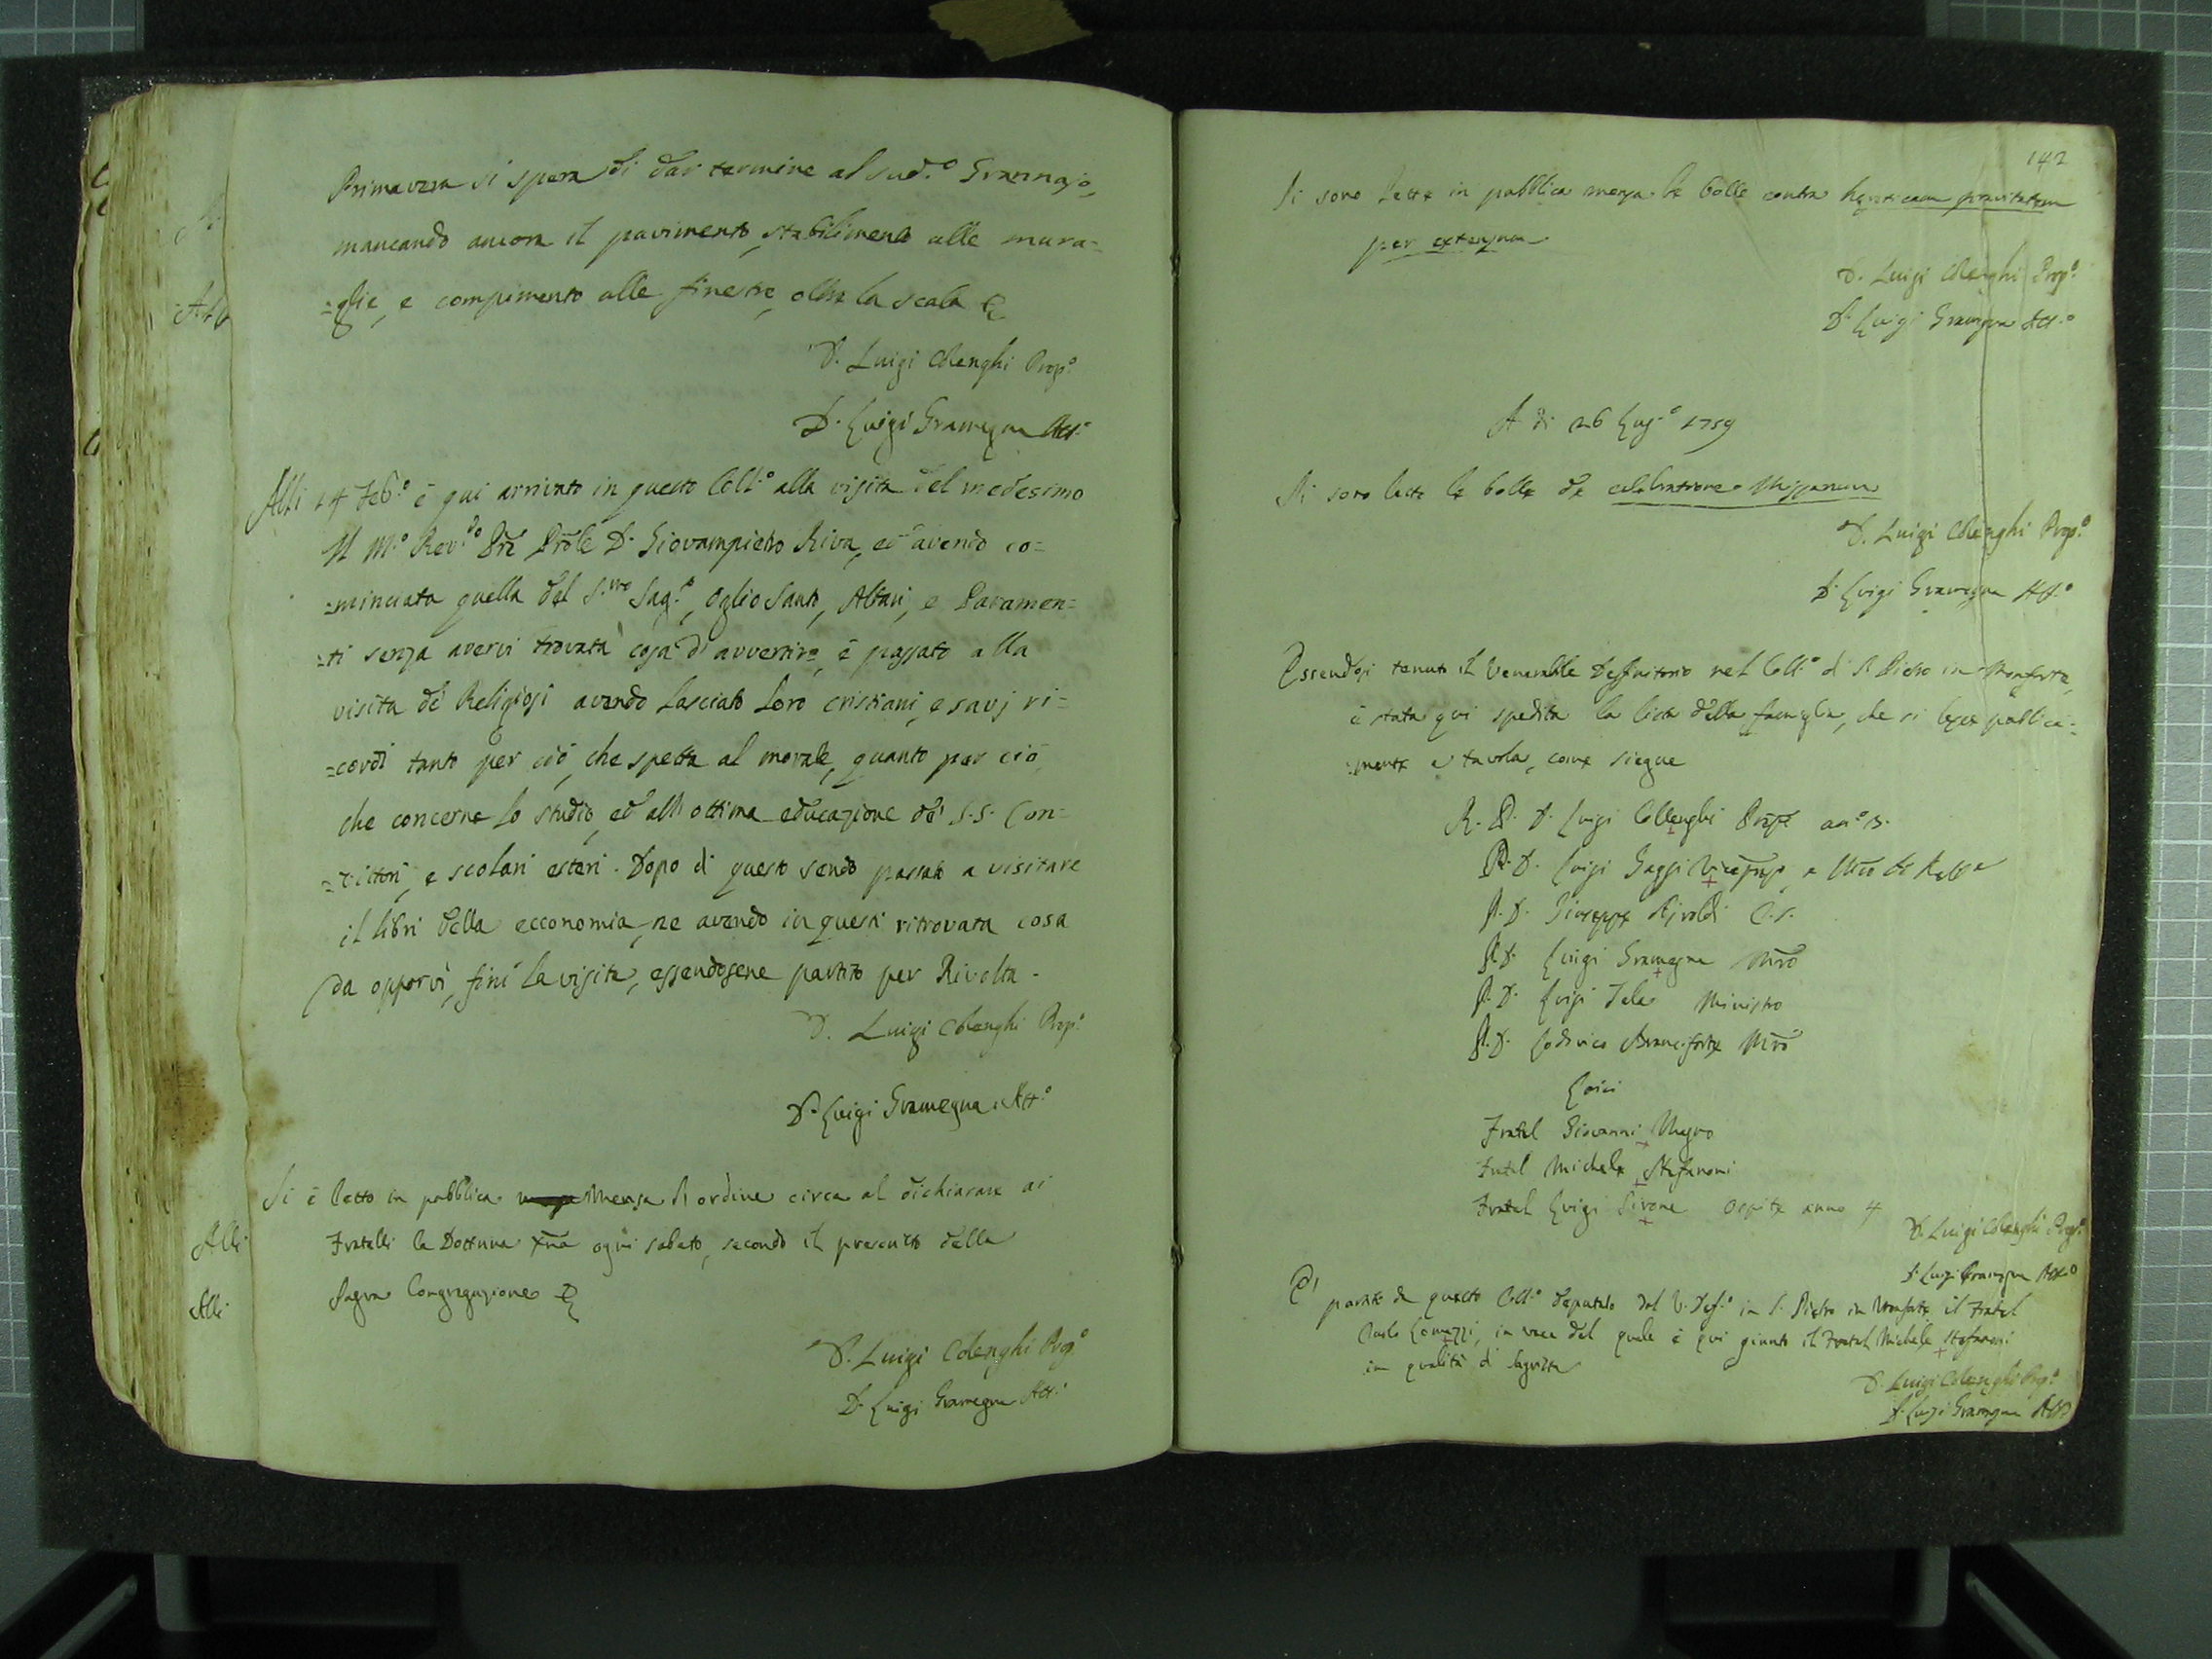 Primavera si spera di dar termine al sud.º Grannajo,
mancando ancora il pavimento, stabilimento alle mura=
=glie, e compimento alle finestre, oltre la scala &
D. Luigi Olenghi Prop.º
D. Luigi Gramegna Att.º
Alli 14 Feb.º è qui arrivato in questo Coll.º alla visita del medesimo
Il M.º Rev.do Prẽ Prõle D. Giovampietro Riva, ed avendo co=
=minciata quella del S.mo Sag.º, Oglio Santo, Altari, e Paramen=
=ti senza avervi trovata cosa d'avvertire, è passato alla
visita de' Religiosi avendo lasciato loro cristiani, e savj ri=
=cordi tanto per ciò, che spetta al morale, quanto per ciò
che concerne lo studio, ed all'ottima educazione de' S.S. Con=
=vittori, e scolari esteri. Dopo di questo sendo passato a visitare
il libri della ecconomia, ne avendo in questi ritrovata cosa
da opporvi, finì la visita, essendosene partito per Rivolta.
D. Luigi Olenghi Prop.º
D. Luigi Gramegna Att.º
Si è letto in pubblica Mensa l'ordine circa al dichiarare ai
Fratelli la Dottrina xña ogni sabato, secondo il prescritto della
Sagra Congregazione &
D. Luigi Olenghi Prop.º
D. Luigi Gramegna Att.º
Alli
Alli
142
Si sono lette in pubblica mensa le bolle contra hæreticam pravitatem
per extensum
D. Luigi Olenghi Prop.º
D. Luigi Gramegna Att.º
A di 26 Lug.º 1759
Si sono lette le bolle de celebratione Missarum
D. Luigi Olenghi Prop.º
D. Luigi Gramegna Att.º
Essendosi tenuto il Venerabile Definitorio nel Coll.º di S. Pietro in Monforte,
è stata qui spedita la lista della famiglia, che si lesse pubblica=
=mente a tavola, come siegue
R. P. D. Luigi Ollenghi Prep.
P. D. Luigi Gaggi Viceprep. e
P. D. Giuseppe Rivoldi C.S.
P. D. Luigi Gramegna Mrõ
P. D. Luigi Ministro
P. D. Lodovico Branciforte Mrõ
Laici
Fratel Giovanni Magno
Fratel Michele Stefanoni
Fratel Luigi Pirone Ospite anno 4
D. Luigi Olenghi Prop.º
D. Luigi Gramegna Att.º
È partito da questo Coll.º deputato dal V. Def.º in S. Pietro in Monforte il Fratel
Paolo Lomazzi, in vece del quale è qui giunto il Fratel Michele Stefanoni
in qualità di Sagrista
D. Luigi Olenghi Prop.º
D. Luigi Gramegna Att.º